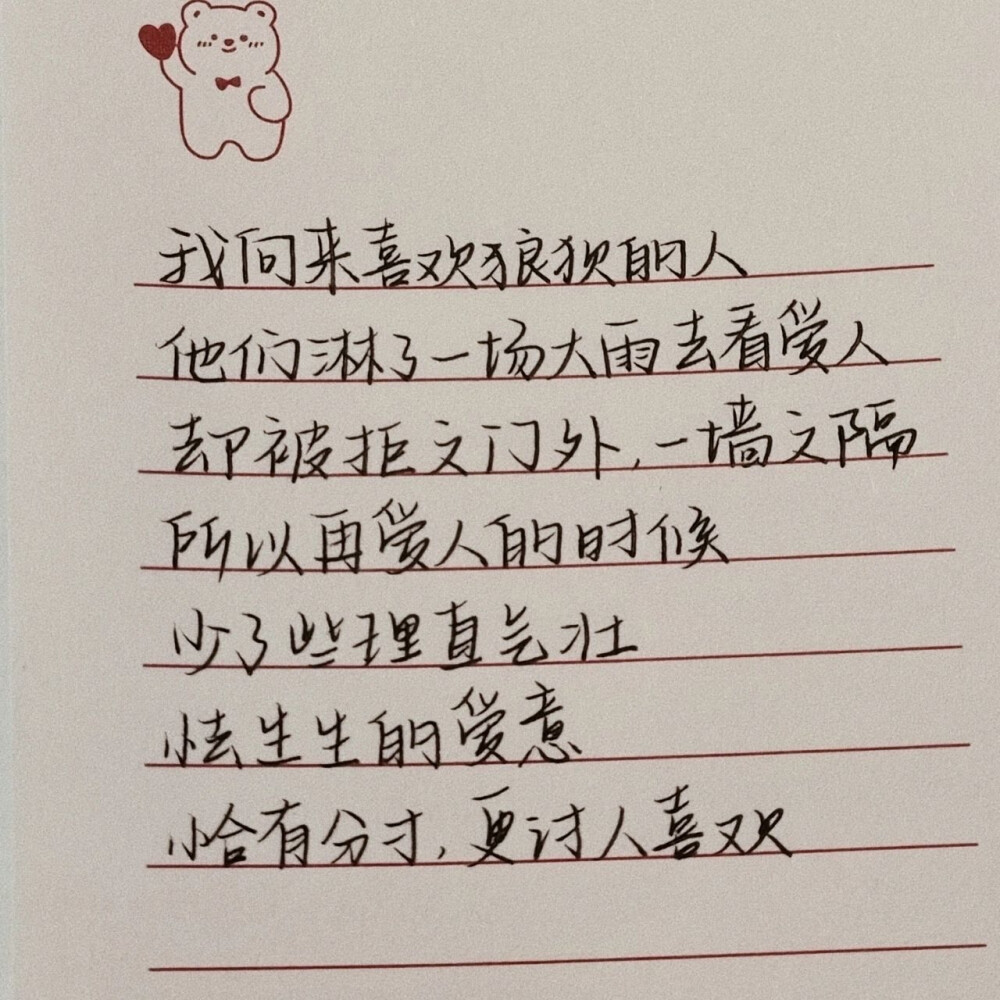 我向来喜欢狼狈的人
他们淋了一场大雨去看爱人
却被拒之门外，一墙之隔
所以再爱人的时候
少了些理直气壮
怯生生的爱意
恰有分寸，更讨人喜欢